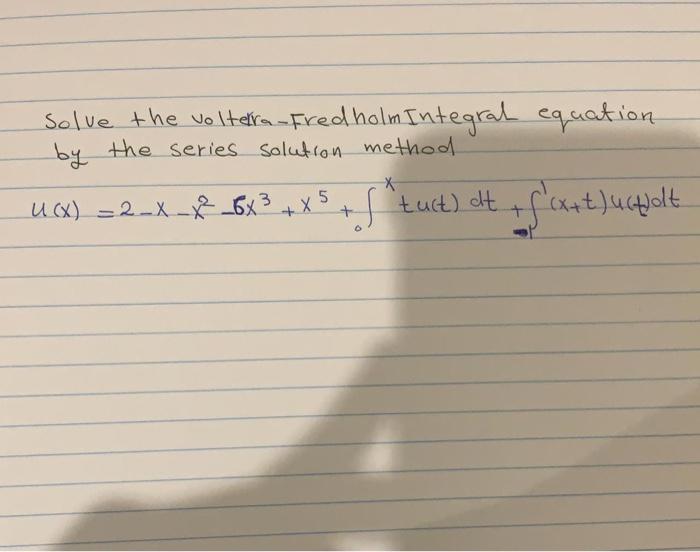 Solve the Volterra-Fredholm Integral equation
by the series solution method
u(x) = 2-x-x² -5x³ + x⁵ + ∫₀ˣ t u(t) dt + ∫₋₁¹ (x+t)u(t)dt